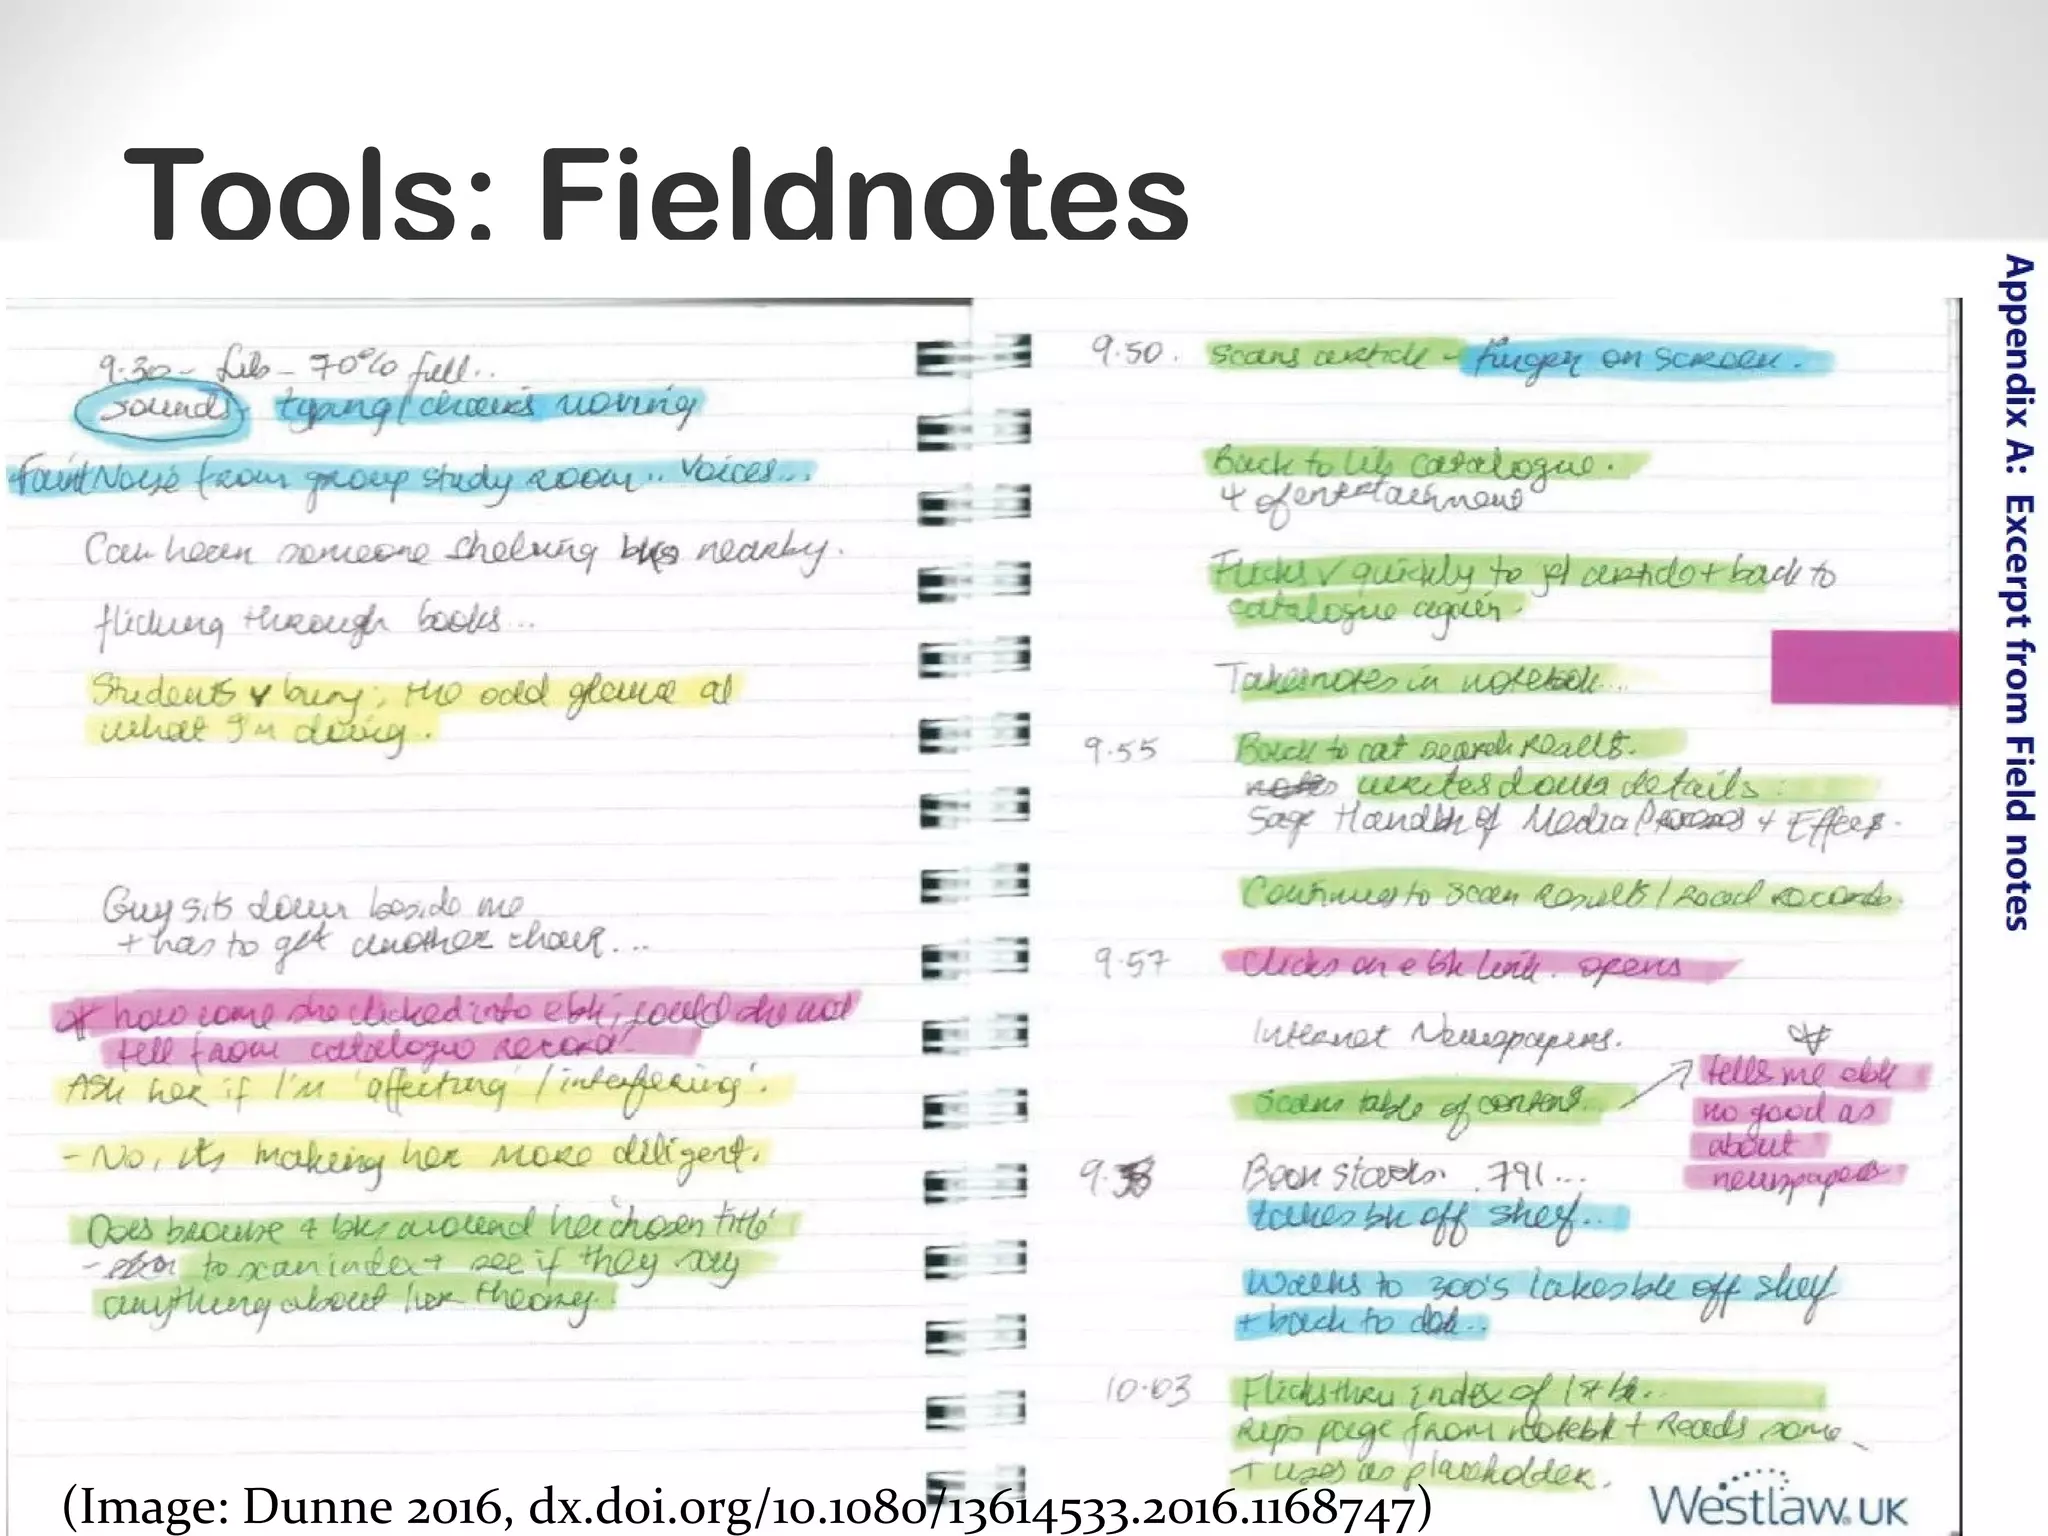 Tools: Fieldnotes
Appendix A: Excerpt from Field notes
9.30 - Lib - 70% full..
sounds - typing / chairs moving
Faint Noise from group study room.. Voices...
Can hear someone shelving bks nearby.
flicking through books...
Students v busy; the odd glance at
what I'm doing.
Guy sits down beside me
+ has to get another chair...
* how come she clicked into ebk; could she not
tell from catalogue record?
Ask her if I'm 'affecting' / 'interfering'.
- No, its making her more diligent.
Does browse 4 bks around her chosen title'
- to scan index + see if they say
anything about her theory.
9.50. Scans article - finger on screen.
Back to lib catalogue.
4 of entertainment
Flicks v quickly to jl article + back to
catalogue again.
Takes notes in notebook...
9.55 Back to cat search results.
notes writes down details:
Sage Handbk of Media Processes + Effects.
Continues to scan results / read records.
9.57 Clicks on ebk link. opens
Internet Newspapers.
Scans table of contents..
* tells me ebk
no good as
about
newspapers
Book stacks. 791...
takes bk off shelf...
Walks to 300's takes bk off shelf
+ back to desk..
10.03 Flicks thru index of 1st bk..
Rips page from notebk + Reads some
+ uses as placeholder.
(Image: Dunne 2016, dx.doi.org/10.1080/13614533.2016.1168747)
Westlaw.UK